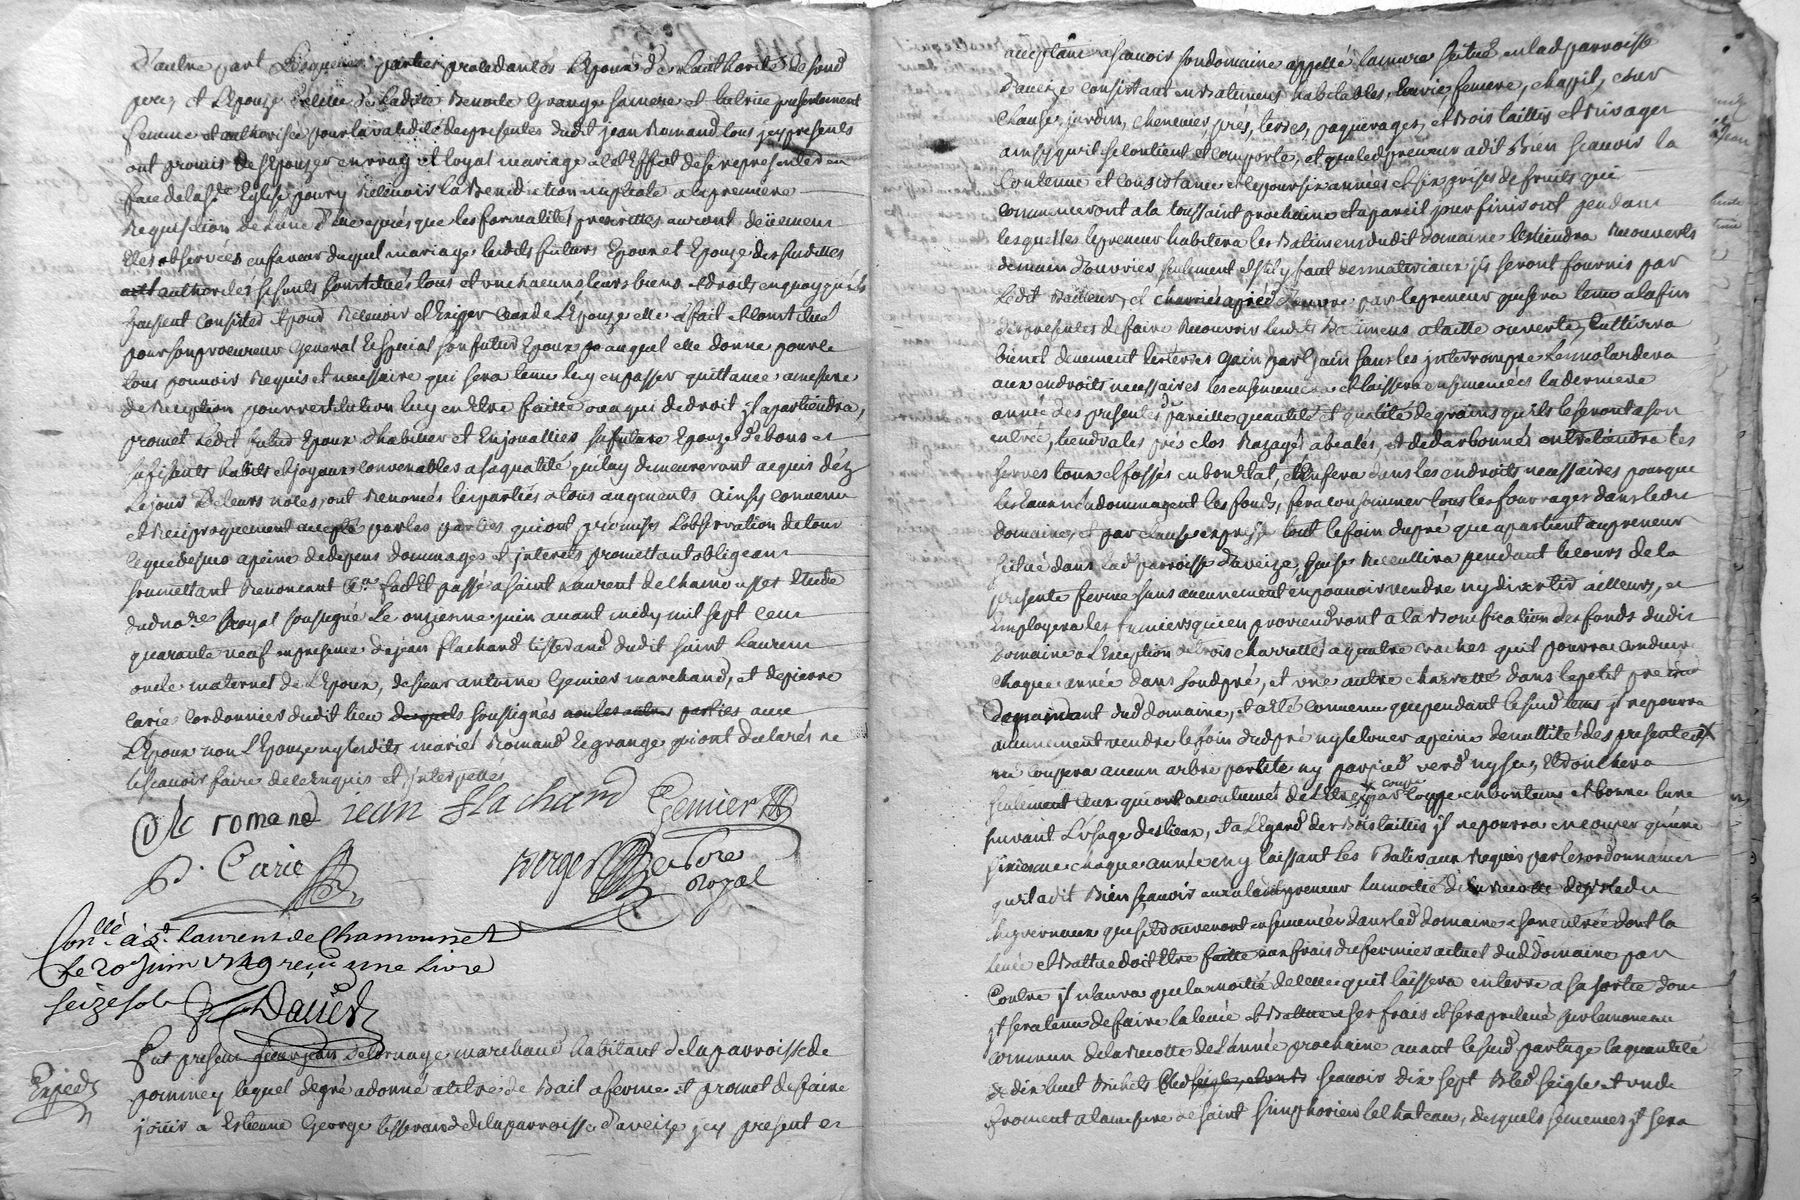 D'autre part Lesquelles parties procedantes L'Epoux de l'authorité de son d.
pere, et L'Epouze de celle de Laditte Benoite Grange sa mere et tutrice presentement
femme et authorisée pour la validité des presentes dudit jean Romand tous icy presents
ont promis de s'Epouzer en vray et loyal mariage a L'Effet de se representer en
face de la Ste Eglise pour y Recevoir la Benediction nuptiale a la premiere
Requisition de L'une d'Elle apres que les formalités prescrittes auront deüement
Etés observées en faveur duquel mariage lesdits futurs Epoux et Epouze des susdittes
authorités se sonts constitués tous et un chacuns leurs biens et droits en quoy qu'ils
puissent consister et pour Recevoir et Exiger ceux de L'Epouze elle a fait et constitué
pour son procureur General et special son futur Epoux auquel elle donne pour ce
tous pouvoir Requis et necessaire qui sera tenu luy en passer quittance a mesure
de Reception pour restitution luy en Etre faitte ou a qui de droit il apartiendra,
promet Ledit futur Epoux d'habiller et Enjoualler sa future Epouze de bons et
sufisants habits et joyaux convenables a sa qualité qui luy demeureront acquis déz
Le jour de leurs noces, ont Renoncés les parties a tous augments ainsy convenu
et Reciproquement accepté par les parties qui ont promises L'observation de tout
ce que dessus a peine de depens dommages et interets promettant obligeant
soumettant Renoncant &a. fait et passé a saint Laurent de chamousset Etude
dudnore Royal soussigné Le onzieme juin avant midy mil sept cent
quarante neuf en presence de jean flachard tisserand dudit saint Laurent
oncle maternel de L'Epoux, de sieur antoine Gemier marchand, et de pierre
Carie Cordonnier dudit lieu soussignés avec
L'Epoux non L'Epouze ny lesdits mariés Romand et grange qui ont declarés ne
le scavoir faire de ce Enquis et interpellés
romand jean Flachard Gemier
P. Carie Berger nore Royal
Conllé à St Laurent de Chamousset
Le 20e Juin 1749 reçu une Livre
seize sols Davier
Fut present sieur jean Delornage marchand habitant de la parroisse de
pommey lequel de gré a donné a titre de Bail a ferme et promet de faire
joüir a Estienne George tisserand de la parroisse d'aveize icy present et
Expiedé
acceptant ascavoir son domaine appellé la mure scitué en lad parroisse
D'aveize consistant en Batimens habitables, Ecurie, feniere, chappit, cour
Clause, jardin, chenevier, prés, terres, paquerages, et Bois taillis et Rivages
ainsy qu'il se contient et comporte, et que led preneur a dit Bien scavoir la
Contenue et consistance et ce pour six années et six prises de fruits qui
commenceront a la toussaint prochaine et a pareil jour finiront pendant
lesquelles le preneur habitera les Batimens dudit domaine les tiendra Recouverts
de main d'ouvrier seulement et s'il y faut des materiaux ils seront fournis par
Ledit Bailleur, et charriés a pied d'œuvre par le preneur qui sera tenu a la fin
des presentes de faire Recouvrir lesdits Batimens a taille ouverte, Cultivera
bien et deuement les terres Gain par Gain sans les interrompre
aux endroits necessaires les ensemencera et laissera ensemencées la derniere
année des presentes pareille quantité et qualité de grains qu'ils le seront a son
entrée, tiendra les prés clos Razagés, abealés, et dedarbonnés entretiendra les
serves tour et fossés en bon Etat, et En fera dans les endroits necessaires pour que
les Eaux n'endommagent les fonds, fera consommer tous les fourrages dans led
domaine, et par clause expresse tout le foin du pré que apartient au preneur
scitué dans lad parroisse d'aveize, qui se Receuillira pendant le cours de la
presente ferme sans aucunement en pouvoir vendre ny divertir ailleurs, et
Employera les fumiers qui en proviendront a la Bonification des fonds dudit
Domaine a L'Exception de trois charrettes a quatre vaches qu'il pourra conduire
chaque année dans son d pré, et une autre charrette dans le petit pré
Dependant dud domaine, et a eté convenu que pendant le susd tems il ne pourra
aucunement vendre le foin dud pré ny le louer a peine de nullité des presentes X
ne coupera aucun arbre par tete ny par pied verd ny sec, Ebranchera
seulement ceux qui ont accoutumés de L'Etre par couppe en bon tems et bonne lune
suivant L'usage des lieux, et a L'Egard des Bois taillis il ne pourra en couper qu'une
sixieme chaque année en y laissant les Balivaux Requis par les ordonnances
qu'il a dit Bien scavoir aura led preneur la moitié de la Recolte des Bleds
hyvernaux qui se trouveront ensemencés dans led domaine a son entrée dont la
levée et Battue doit Etre faitte aux frais du fermier actuel dud domaine par
Contre il n'aura que la moitié de celle qu'il laissera en terre a sa sortie dont
il sera tenu de faire la levée et Battue a ses frais et sera prelevé sur le monceau
commun de la Recolte de L'année prochaine avant le susd partage la quantité
de dix huit Bichets scavoir dix sept Bled seigle et un de
froment a la mesure de saint simphorien le chateau, desquels semences il sera